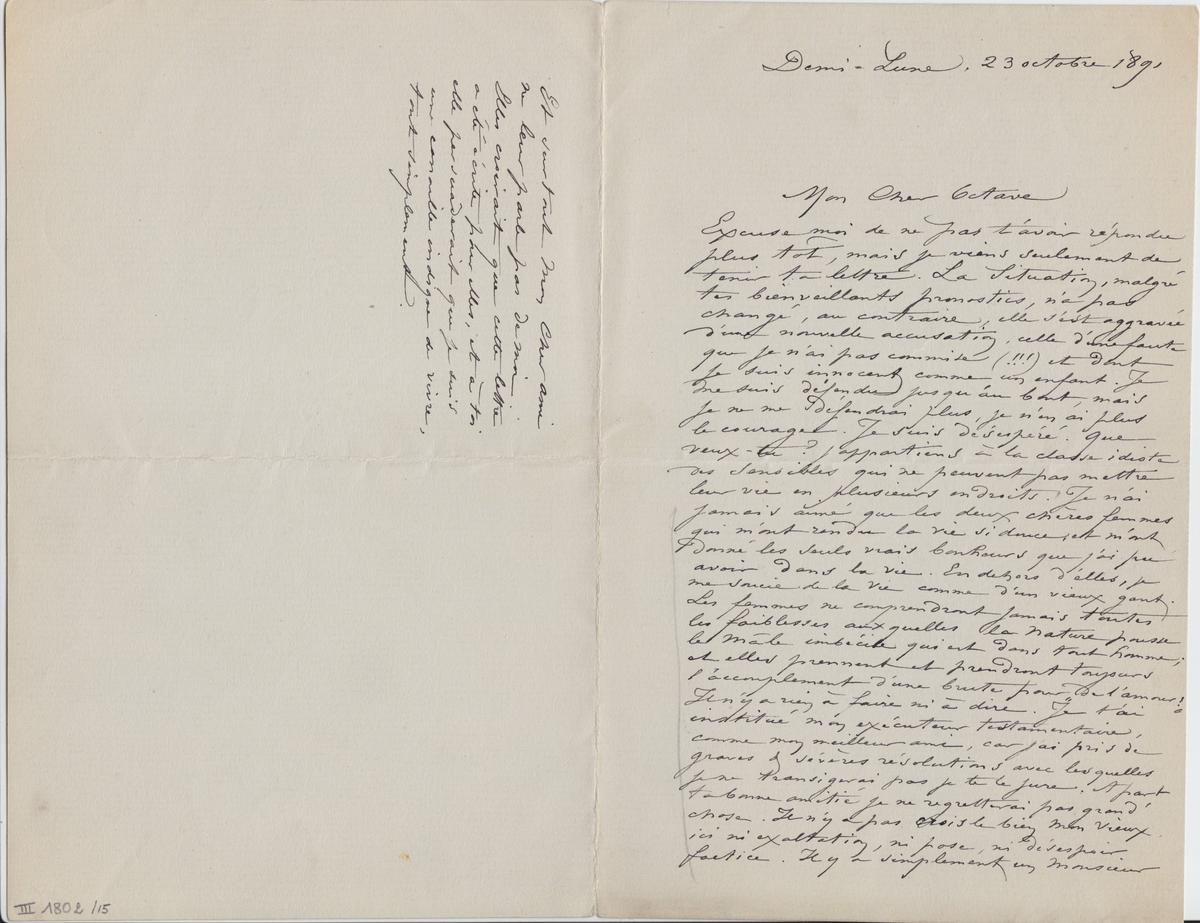 Demi-Lune, 23 octobre 1891
Mon Cher Octave
Excuse moi de ne pas t'avoir répondu
plus tôt, mais je viens seulement de
tenir ta lettre. La Situation, malgré
tes bienveillants pronostics, n'a pas
changé, au contraire, elle s'est aggravée
d'une nouvelle accusation, celle d'une faute
que je n'ai pas commise (!!!) et dont
je suis innocent comme un enfant. Je
me suis défendu jusqu'au bout, mais
je ne me défendrai plus, je n'en ai plus
le courage. Je suis désespéré. Que
veux-tu? j'appartiens à la classe idiote
des sensibles qui ne peuvent pas mettre
leur vie en plusieurs endroits. Je n'ai
jamais aimé que les deux chères femmes
qui m'ont rendu la vie si douce, et m'ont
donné les seuls vrais bonheurs que j'ai pu
avoir dans la vie. En dehors d'elles, je
me soucie de la vie comme d'un vieux gant.
Les femmes ne comprendront jamais toutes
les faiblesses auxquelles la Nature pousse
le mâle imbécile qui est dans tout homme,
et elles prennent et prendront toujours
l'accomplement d'une brute pour de l'amour!
Il n'y a rien à faire ni à dire. Je t'ai
institué mon exécuteur testamentaire,
comme mon meilleur ami, car j'ai pris de
graves & sévères résolutions avec lesquelles
je ne transigerai pas je te le jure. Apart
ta bonne amitié je ne regretterai pas grand'
chose. Il n'y a pas crois le bien mon vieux
ici ni exaltation, ni pose, ni désespoir
factice. Il y a simplement un monsieur
Et surtout mon Cher ami
ne leur parle pas de moi.
Elles croirait que cette lettre
a été écrite pour elles, et à toi
elle persuaderont que je suis
une canaille indigne de vivre,
tout simplement.
III 1802/15